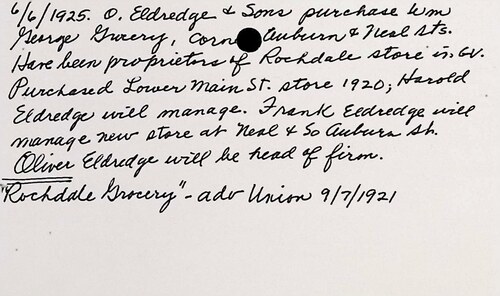 6/6/1925. O. Eldredge & Sons purchase Wm
George Grocery, Corne Auburn & Neal Sts.
Have been proprietors of Rochdale store in GV.
Purchased Lower Main St. store 1920; Harold
Eldredge will manage. Frank Eldredge will
manage new store at Neal & So Auburn St.
Oliver Eldredge will be head of firm.
"Rochdale Grocery" - adv Union 9/7/1921